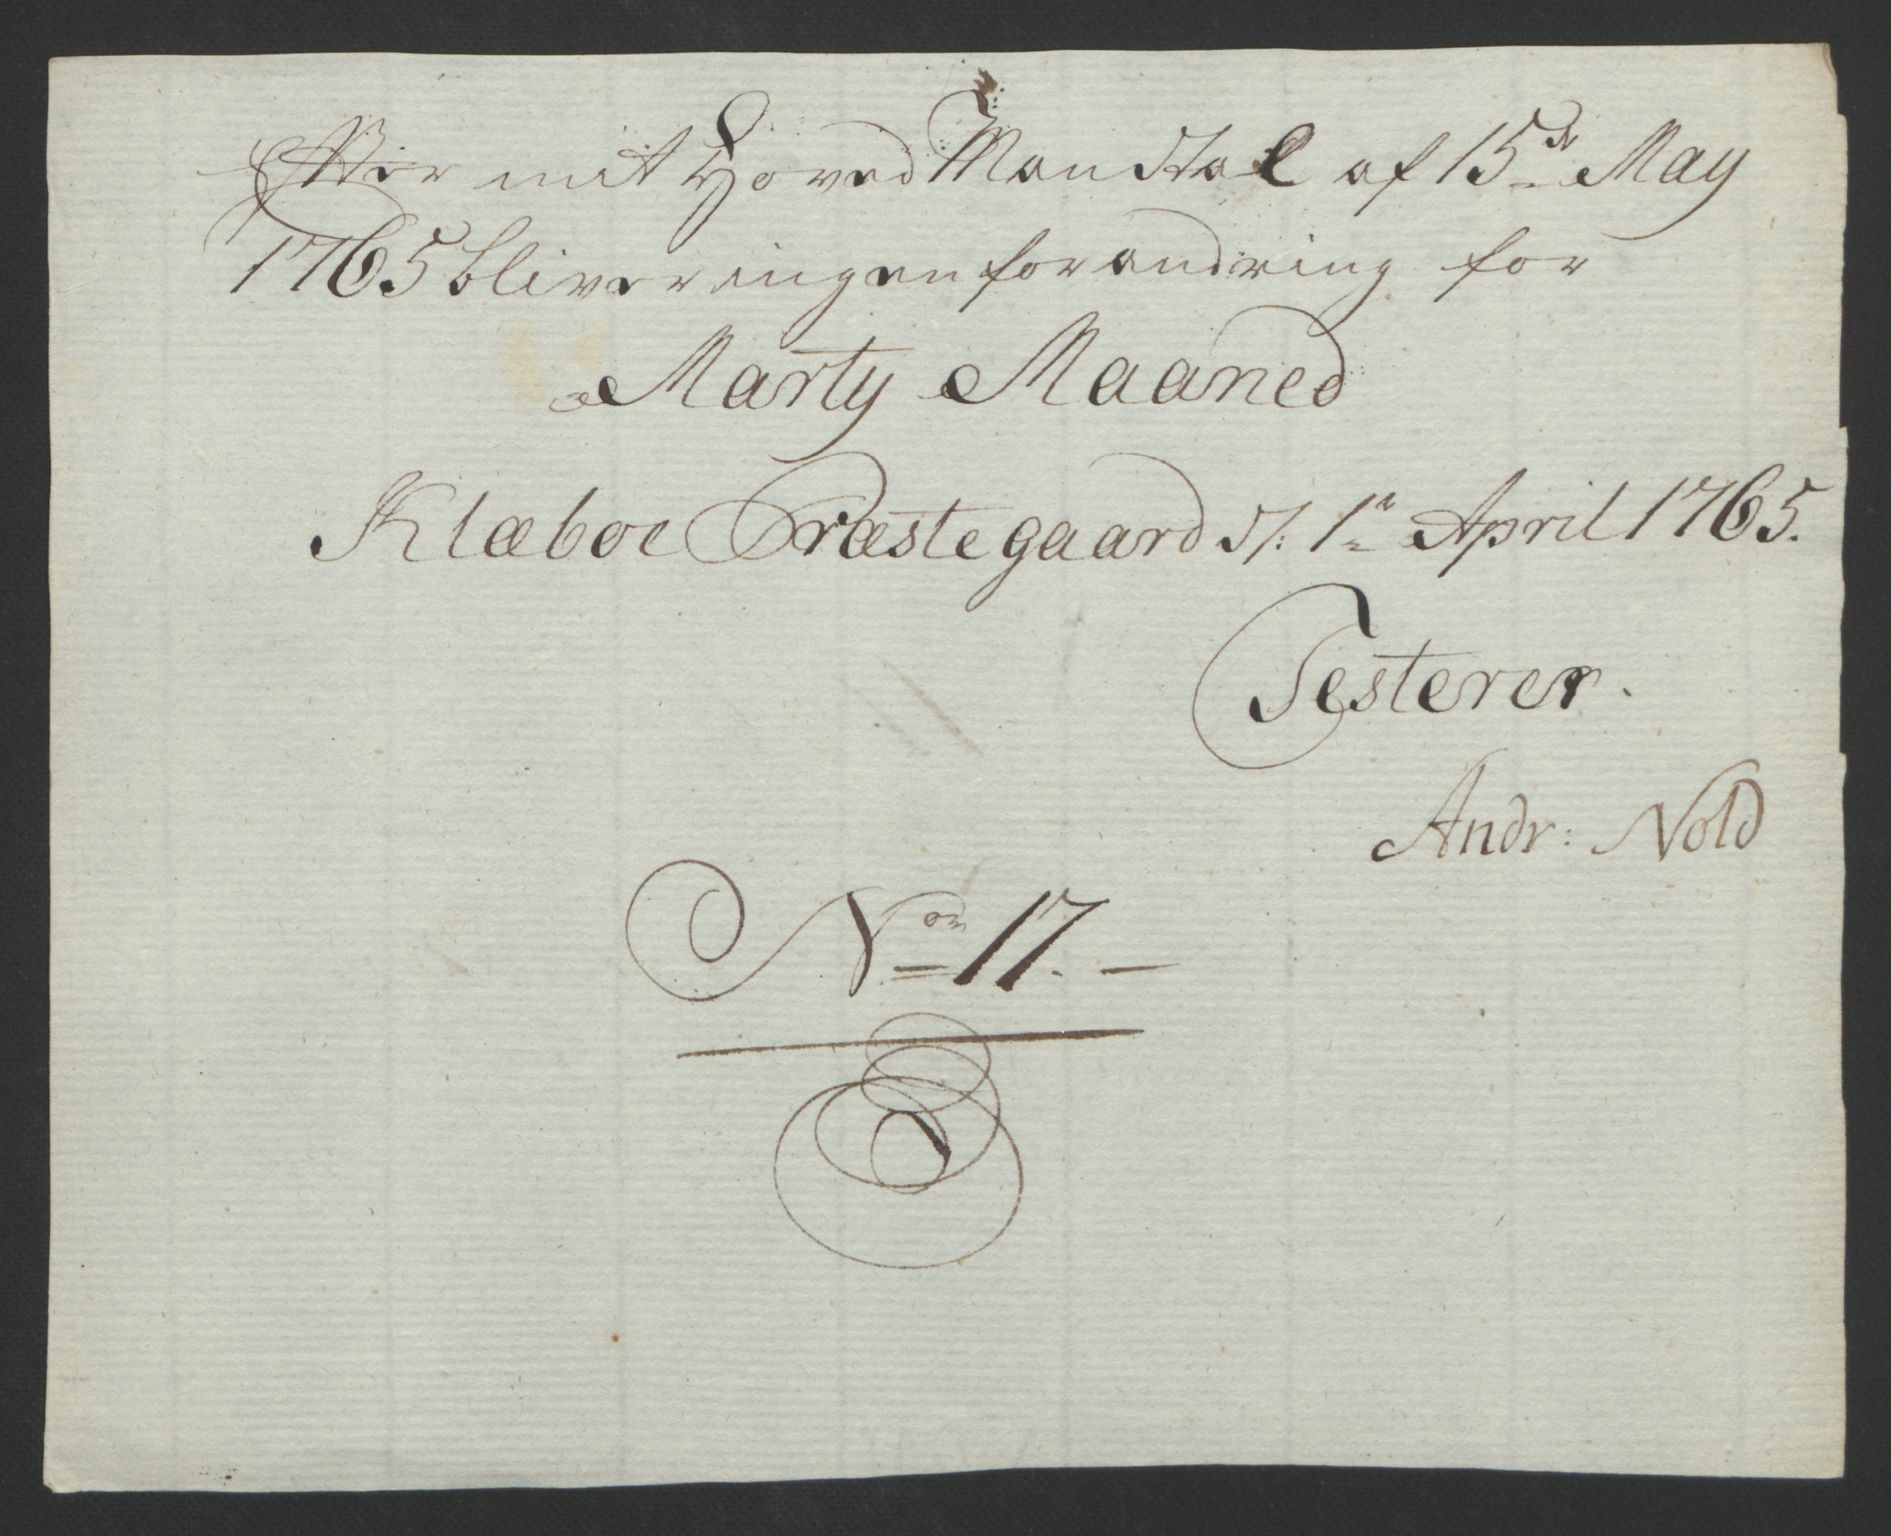 Efter mit Hoved Mandtal af 15de May
1765 bliver ingen forandring for
Marty Maaned
Klæboe Præstegaard d/: 1te April 1765.
Testerer.
Andr: Nold
No 17. —